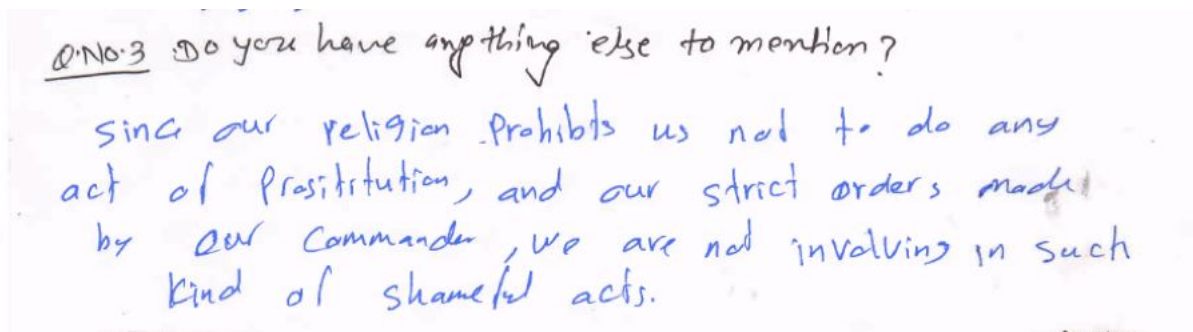 Q.NO.3 Do you have anything else to mention?
Since our religion Prohibts us not to do any
act of Prositrtution, and our strict orders made
by our Commander, we are not involving in such
kind of shameful acts.